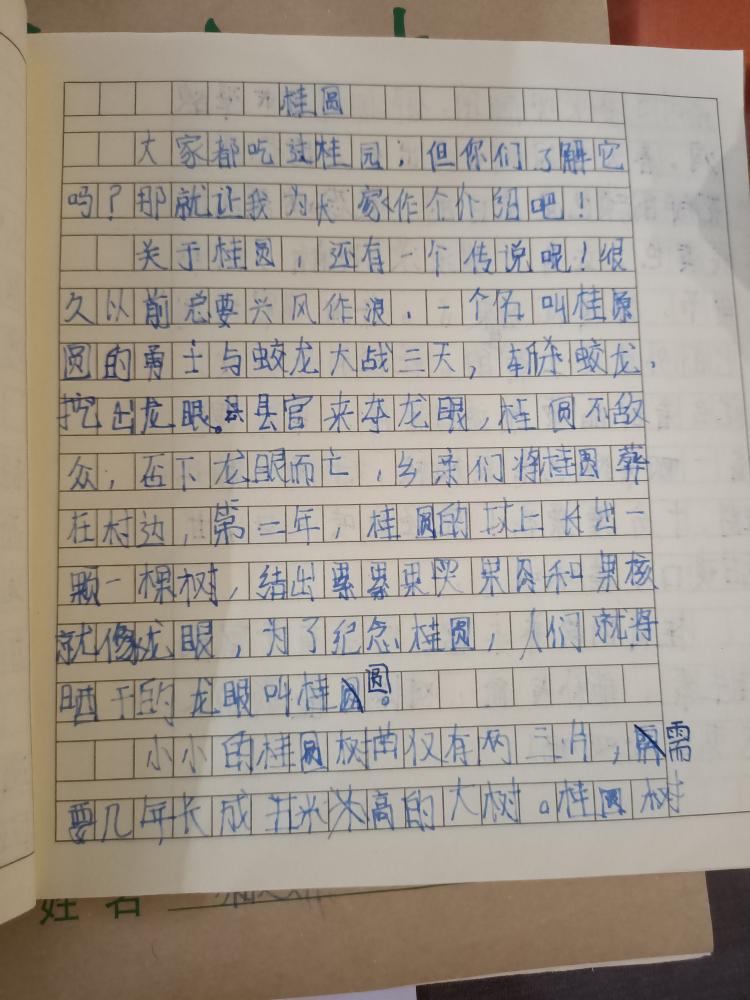 桂圆
大家都吃过桂园，但你们了解它
吗？那就让我为大家作个介绍吧！
关于桂圆，还有一个传说呢！很
久以前总要兴风作浪，一个名叫桂原
圆的勇士与蛟龙大战三天，斩杀蛟龙，
挖出龙眼。县官来夺龙眼，桂圆不敌
众，吞下龙眼而亡，乡亲们将桂圆葬
在村边，第二年，桂圆的坟上长出一
颗一棵树，结出累累果实果肉和果核
就像龙眼，为了纪念桂圆，人们就将
晒干的龙眼叫桂圆。
小小的桂圆树苗仅有两三片，需
要几年长成米高的大树。桂圆树
姓名